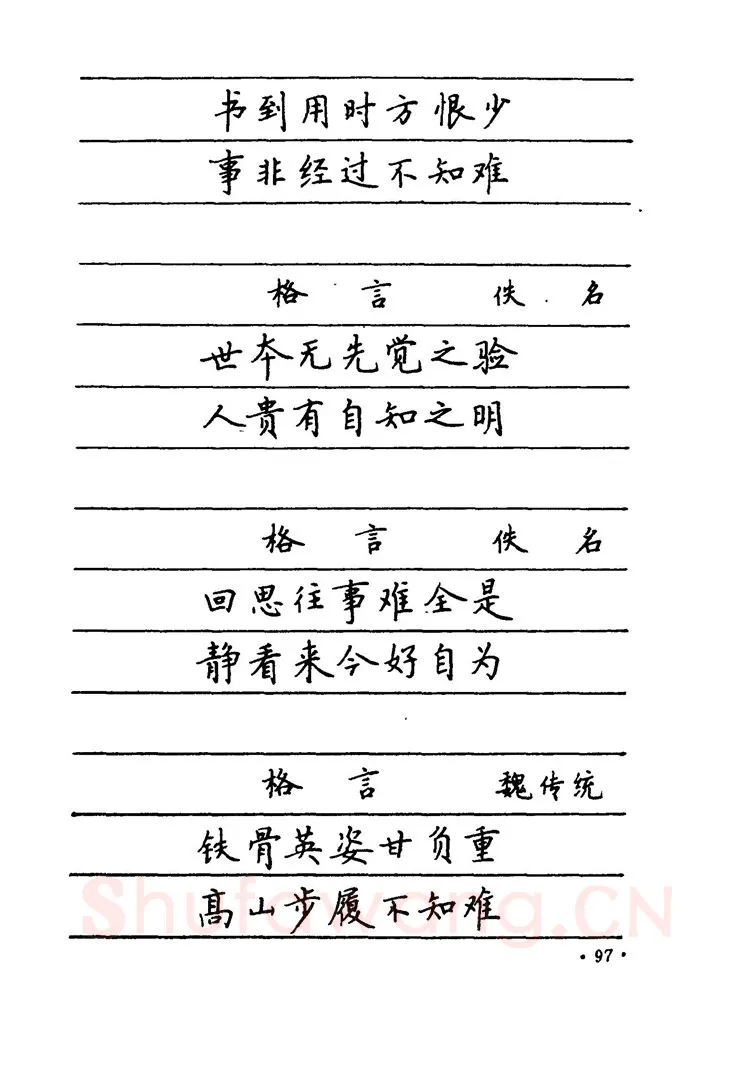 书到用时方恨少
事非经过不知难
格言 佚名
世本无先觉之验
人贵有自知之明
格言 佚名
回思往事难全是
静看来今好自为
格言 魏传统
铁骨英姿甘负重
高山步履不知难
Shufawang.CN
·97·